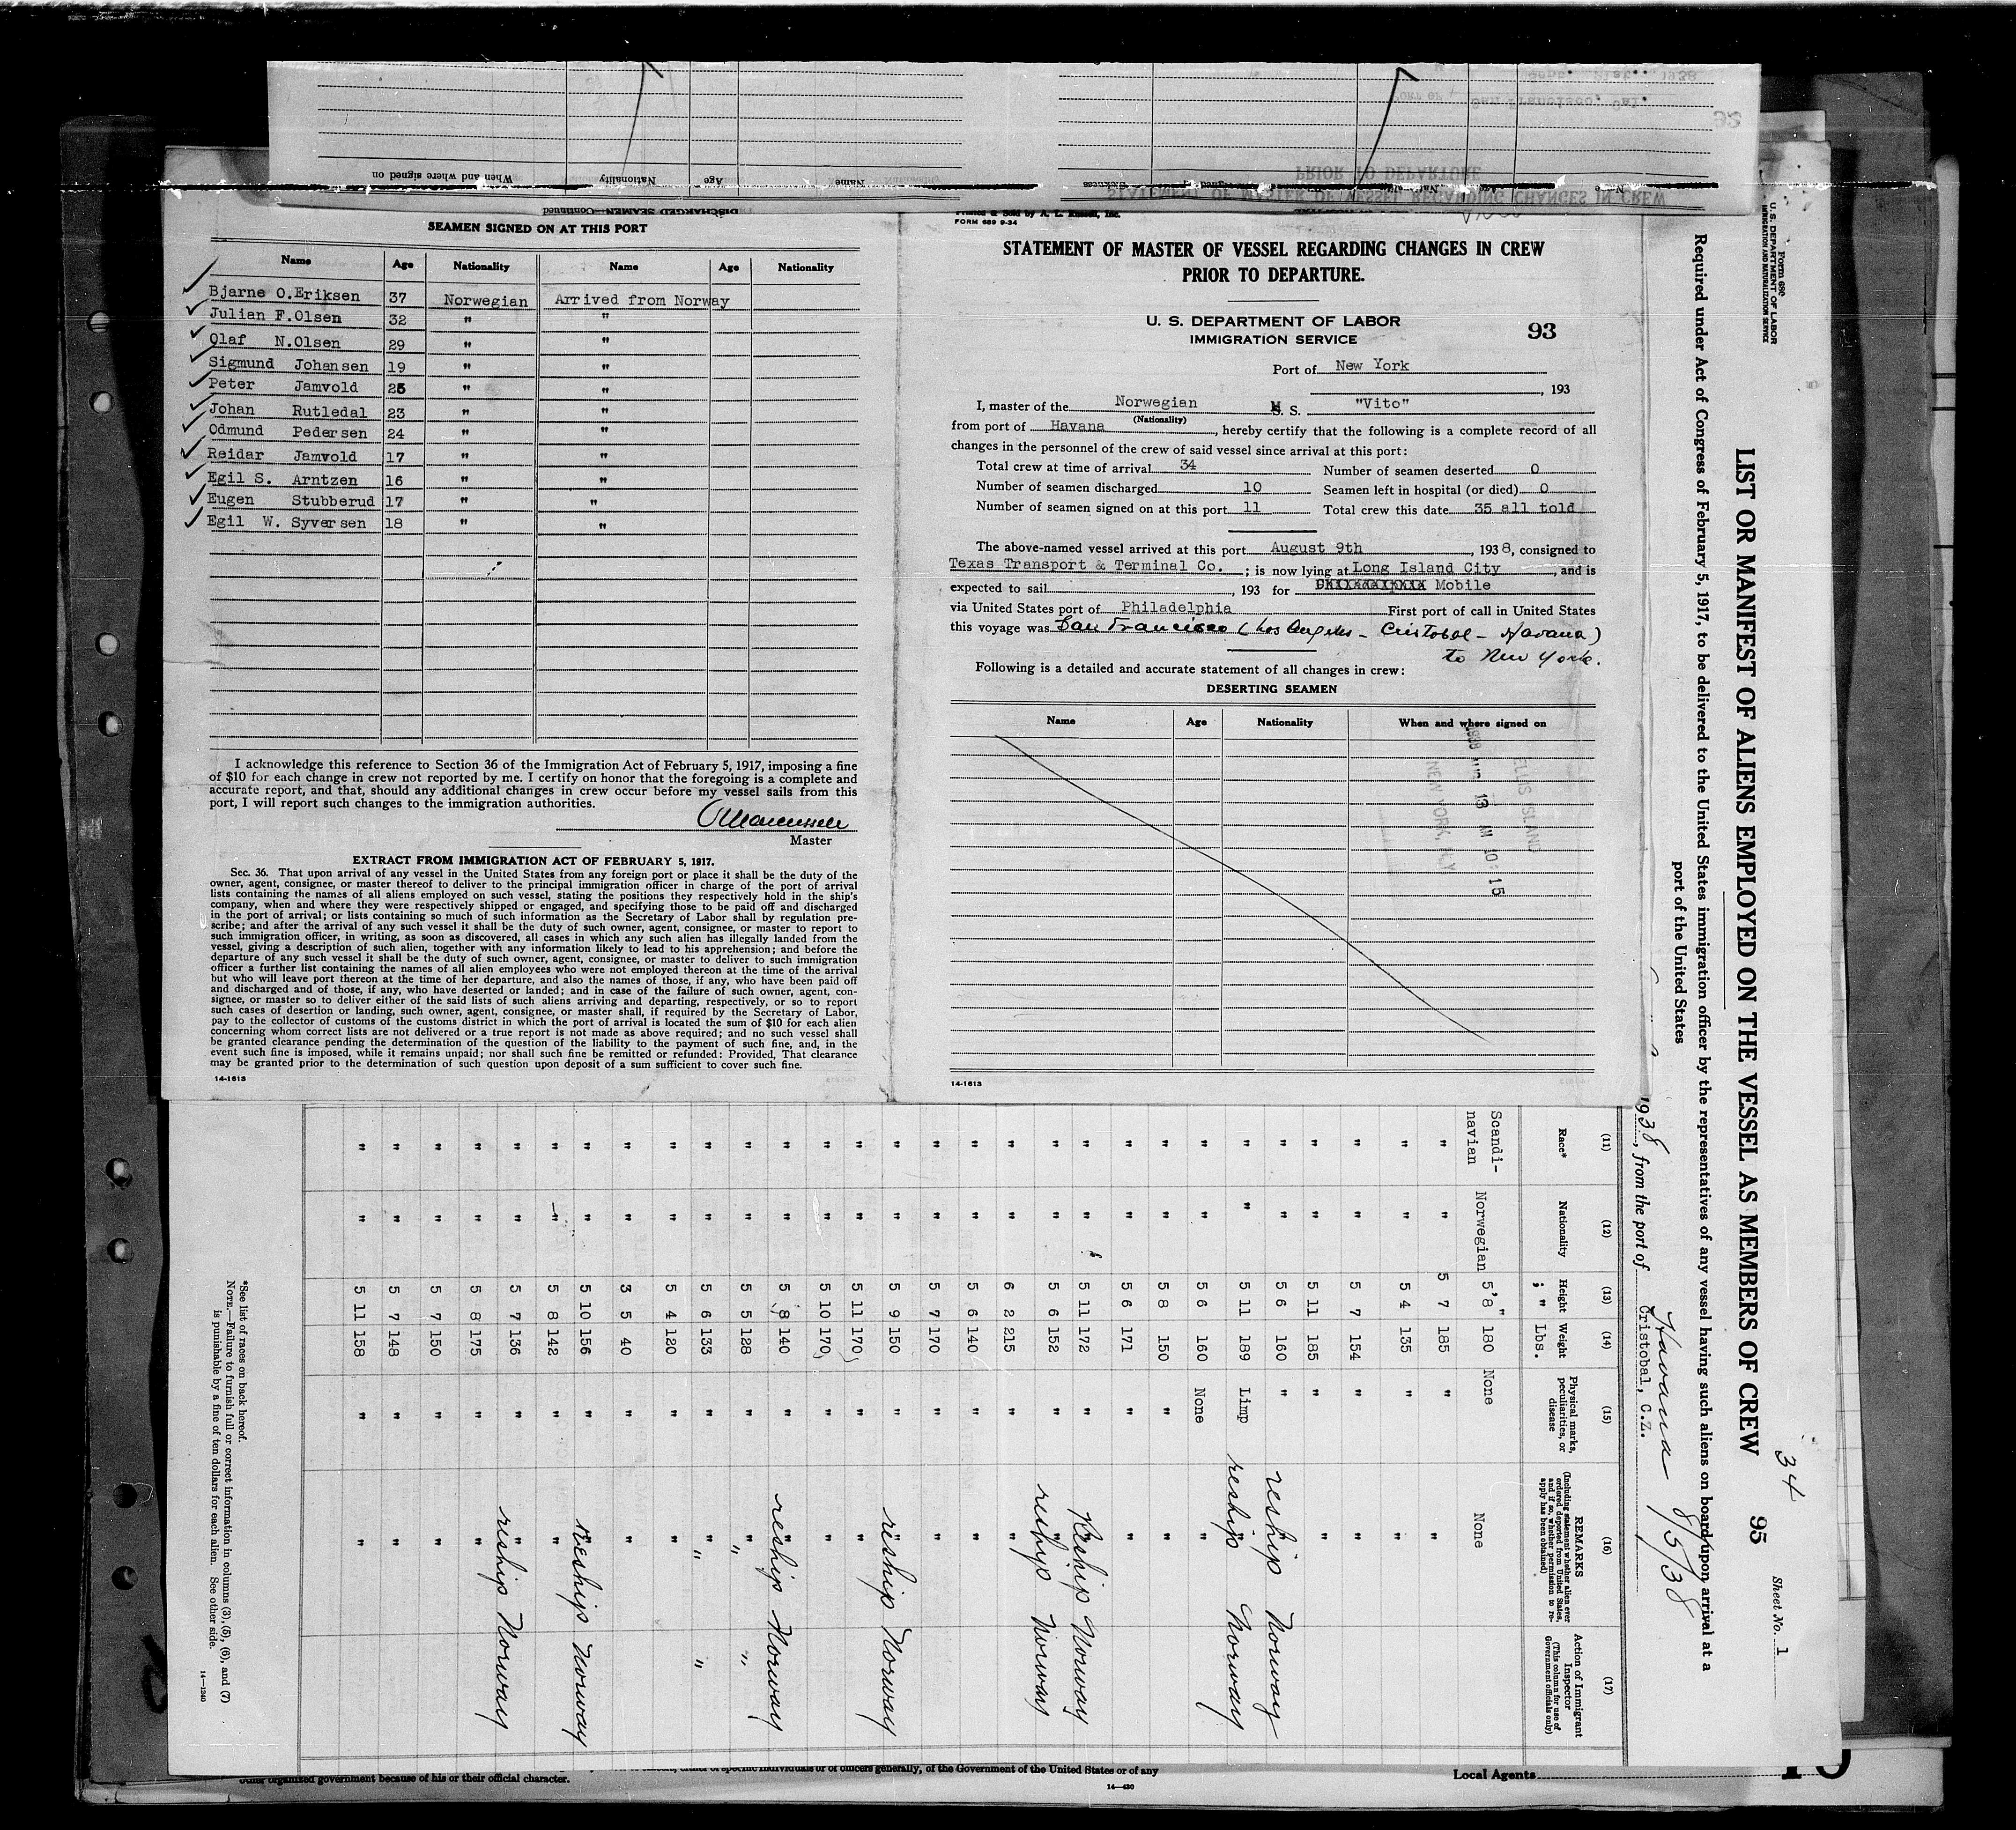 When and where signed on
Nationality
Age
Name
DISCHARGED SEAMEN—Continued
SEAMEN SIGNED ON AT THIS PORT
Name Age Nationality Name Age Nationality
Bjarne O.Eriksen 37 Norwegian Arrived from Norway
Julian F.Olsen 32 " "
Olaf N.Olsen 29 " "
Sigmund Johansen 19 " "
Peter Jamvold 25 " "
Johan Rutledal 23 " "
Odmund Pedersen 24 " "
Reidar Jamvold 17 " "
Egil S. Arntzen 16 " "
Eugen Stubberud 17 " "
Egil W. Syversen 18 " "
I acknowledge this reference to Section 36 of the Immigration Act of February 5, 1917, imposing a fine
of $10 for each change in crew not reported by me. I certify on honor that the foregoing is a complete and
accurate report, and that, should any additional changes in crew occur before my vessel sails from this
port, I will report such changes to the immigration authorities.
Master
EXTRACT FROM IMMIGRATION ACT OF FEBRUARY 5, 1917.
Sec. 36. That upon arrival of any vessel in the United States from any foreign port or place it shall be the duty of the
owner, agent, consignee, or master thereof to deliver to the principal immigration officer in charge of the port of arrival
lists containing the names of all aliens employed on such vessel, stating the positions they respectively hold in the ship's
company, when and where they were respectively shipped or engaged, and specifying those to be paid off and discharged
in the port of arrival; or lists containing so much of such information as the Secretary of Labor shall by regulation pre-
scribe; and after the arrival of any such vessel it shall be the duty of such owner, agent, consignee, or master to report to
such immigration officer, in writing, as soon as discovered, all cases in which any such alien has illegally landed from the
vessel, giving a description of such alien, together with any information likely to lead to his apprehension; and before the
departure of any such vessel it shall be the duty of such owner, agent, consignee, or master to deliver to such immigration
officer a further list containing the names of all alien employees who were not employed thereon at the time of the arrival
but who will leave port thereon at the time of her departure, and also the names of those, if any, who have been paid off
and discharged and of those, if any, who have deserted or landed; and in case of the failure of such owner, agent, con-
signee, or master so to deliver either of the said lists of such aliens arriving and departing, respectively, or so to report
such cases of desertion or landing, such owner, agent, consignee, or master shall, if required by the Secretary of Labor,
pay to the collector of customs of the customs district in which the port of arrival is located the sum of $10 for each alien
concerning whom correct lists are not delivered or a true report is not made as above required; and no such vessel shall
be granted clearance pending the determination of the question of the liability to the payment of such fine, and, in the
event such fine is imposed, while it remains unpaid; nor shall such fine be remitted or refunded: Provided, That clearance
may be granted prior to the determination of such question upon deposit of a sum sufficient to cover such fine.
14-1613
Printed & Sold by A. L. Russell, Inc.
FORM 689 9-34
STATEMENT OF MASTER OF VESSEL REGARDING CHANGES IN CREW
PRIOR TO DEPARTURE.
U. S. DEPARTMENT OF LABOR
IMMIGRATION SERVICE
93
Port of New York
, 193
I, master of the Norwegian M. S. "Vito"
(Nationality)
from port of Havana, hereby certify that the following is a complete record of all
changes in the personnel of the crew of said vessel since arrival at this port:
Total crew at time of arrival 34 Number of seamen deserted 0
Number of seamen discharged 10 Seamen left in hospital (or died) 0
Number of seamen signed on at this port 11 Total crew this date 35 all told
The above-named vessel arrived at this port August 9th, 1938, consigned to
Texas Transport & Terminal Co.; is now lying at Long Island City, and is
expected to sail, 193 for Mobile
via United States port of Philadelphia First port of call in United States
this voyage was San Francisco (Los Angeles - Cristobal - Havana)
to New York.
Following is a detailed and accurate statement of all changes in crew:
DESERTING SEAMEN
Name Age Nationality When and where signed on
ELLIS ISLAND
1938 AUG 13 AM 10:15
NEW YORK, N.Y
14-1613
Form 680
U. S. DEPARTMENT OF LABOR
IMMIGRATION AND NATURALIZATION SERVICE
34
95
Sheet No. 1
LIST OR MANIFEST OF ALIENS EMPLOYED ON THE VESSEL AS MEMBERS OF CREW
Required under Act of Congress of February 5, 1917, to be delivered to the United States immigration officer by the representatives of any vessel having such aliens on board upon arrival at a
port of the United States
1938, from the port of Cristobal, C.Z.
Havana 8/5/38
(11) (12) (13) (14) (15) (16) (17)
Race* Nationality Height ' " Weight Lbs. Physical marks, peculiarities, or disease REMARKS (Including statement whether alien ever ordered deported from United States, and if so, whether permission to re-apply has been obtained) Action of Immigrant Inspector (This column for use of Government officials only)
Scandi-navian Norwegian 5'8" 180 None None
" " 5 7 185 " "
" " 5 4 135 " "
" " 5 7 154 " "
" " 5 11 185 " "
" " 5 6 160 " reship Norway
" " 5 11 189 Limp reship Norway
" " 5 6 160 None "
" " 5 8 150 " "
" " 5 6 171 " "
" " 5 11 172 " Reship Norway
" " 5 6 152 " reship Norway
" " 6 2 215 " "
" " 5 6 140 " "
" " 5 7 170 " "
" " 5 9 150 " reship Norway
" " 5 11 170 " "
" " 5 10 170 " "
" " 5 8 140 " reship Norway
" " 5 5 128 " " "
" " 5 6 133 " " "
" " 5 4 120 " "
" " 3 5 40 " "
" " 5 10 156 " reship Norway
" " 5 8 142 " "
" " 5 7 136 " reship Norway
" " 5 8 175 " "
" " 5 7 150 " "
" " 5 7 148 " "
" " 5 11 158 " "
*See list of races on back hereof.
NOTE.—Failure to furnish full or correct information in columns (3), (5), (6), and (7)
is punishable by a fine of ten dollars for each alien. See other side.
14—1240
other organized government because of his or their official character.
of specific individuals or of officers generally, of the Government of the United States or of any
14—430
Local Agents